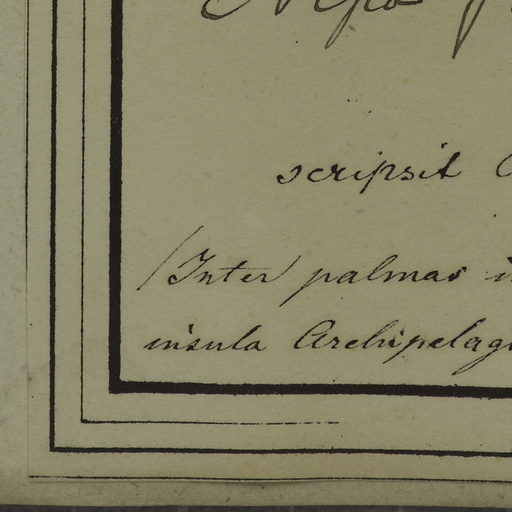 scripsit
(Inter palmas
insula Archipelag